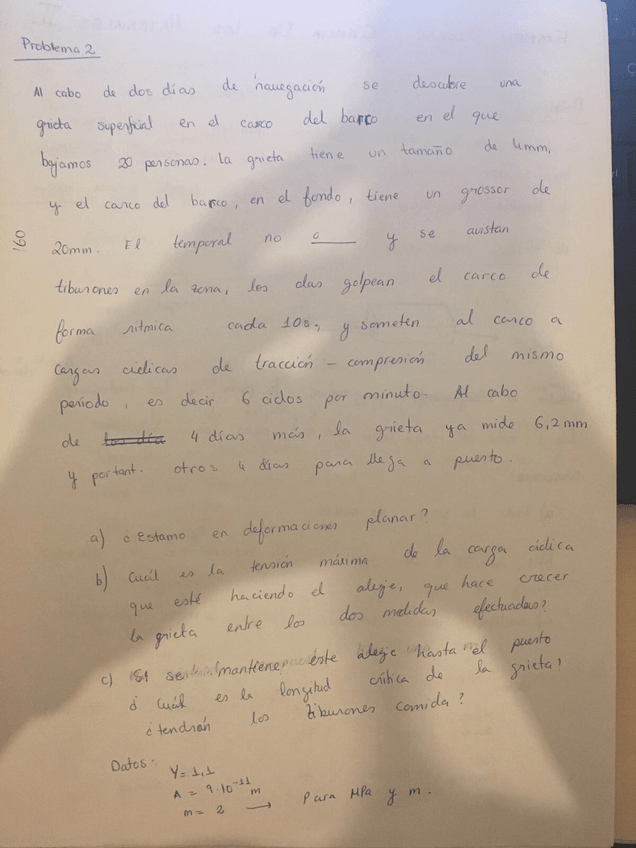 Problema 2
Al cabo de dos días de navegación se descubre una
grieta superficial en el casco del barco en el que
bajamos 20 personas. La grieta tiene un tamaño de 4mm,
y el casco del barco, en el fondo, tiene un grossor de
20mm. El temporal no y se avistan
tiburones en la zona, los olas golpean el carco de
forma ritmica cada 10s, y someten al carco a
cargas ciclicas de tracción - compresión del mismo
periodo, es decir 6 ciclos por minuto. Al cabo
de 4 días más, la grieta ya mide 6,2mm
y portant. otros 4 días para llega a puerto.
160
a) ¿Estamo en deformaciones planar?
b) Cuál es la tensión máxima de la carga cíclica
que esté haciendo el aleje, que hace crecer
la grieta entre los dos medidas efectuadas?
c) Si se mantiene este aleje hasta el puerto
¿Cuál es la longitud crítica de la grieta,
¿tendrán los tiburones comida?
Datos:
Y = 1,1
A = 9·10⁻¹¹ m
m = 2 → Para MPa y m.